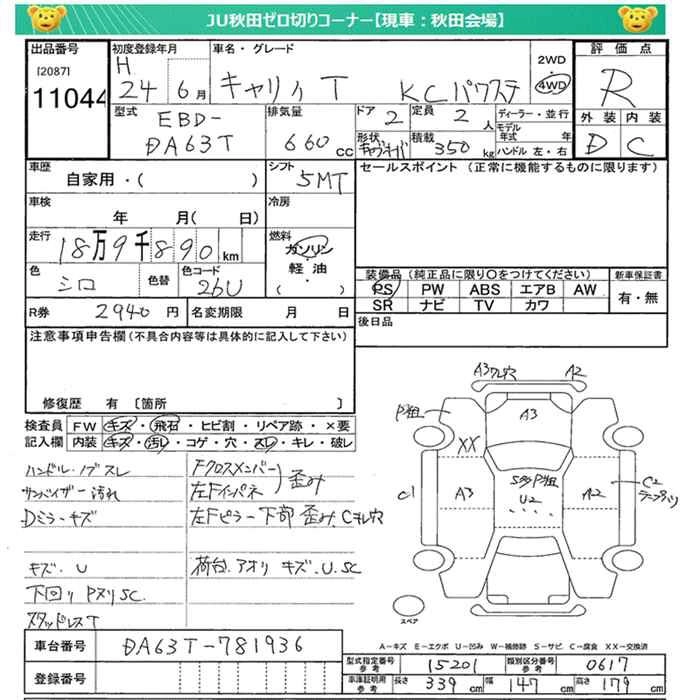 JU秋田ゼロ切りコーナー【現車：秋田会場】
出品番号 初度登録年月 車名・グレード 2WD 評価点
[2087] H 24 6月 キャリイ T KCパワステ 4WD R
11044 型式 排気量 ドア 定員 ディーラー・並行 外装 内装
EBD- 660cc 2 2人 モデル年式 年 D C
DA63T 形状 積載 350kg ハンドル 左・右
車歴 シフト セールスポイント（正常に機能するものに限ります）
自家用・（ ） 5MT
車検 冷房
年 月（ 日）
走行 燃料
18万9千890km ガソリン
軽油
色 色替 色コード （ ） 装備品（純正品に限り○をつけてください） 新車保証書
シロ 26U PS PW ABS エアB AW 有・無
SR ナビ TV カワ
R券 2940円 名変期限 月 日 後日品
注意事項申告欄（不具合内容等は具体的に記入して下さい）
修復歴 有〔箇所 〕
検査員 FW キズ・飛石・ヒビ割・リペア跡・×要
記入欄 内装 キズ・汚レ・コゲ・穴・スレ・キレ・破レ
ハンドル・ノブスレ Fクロスメンバー 歪み
サンバイザー汚れ 左Fインパネ
Dミラーキズ 左Fピラー下部 歪み.
キズ.U 荷台.アオリ キズ.U.SC
下回り Pヌリ SC.
スタッドレスT
A3 A2
P粗 A3
XX
C1 A3 U2 A2 C2
スペア
A－キズ E－エクボ U－凹み W－補修跡 S－サビ C－腐食 XX－交換済
車台番号 DA63T-781936
型式指定番号 参考 15201 類別区分番号 参考 0617
登録番号 車庫証明用 参考 長さ 339cm 幅 147cm 高さ 179cm